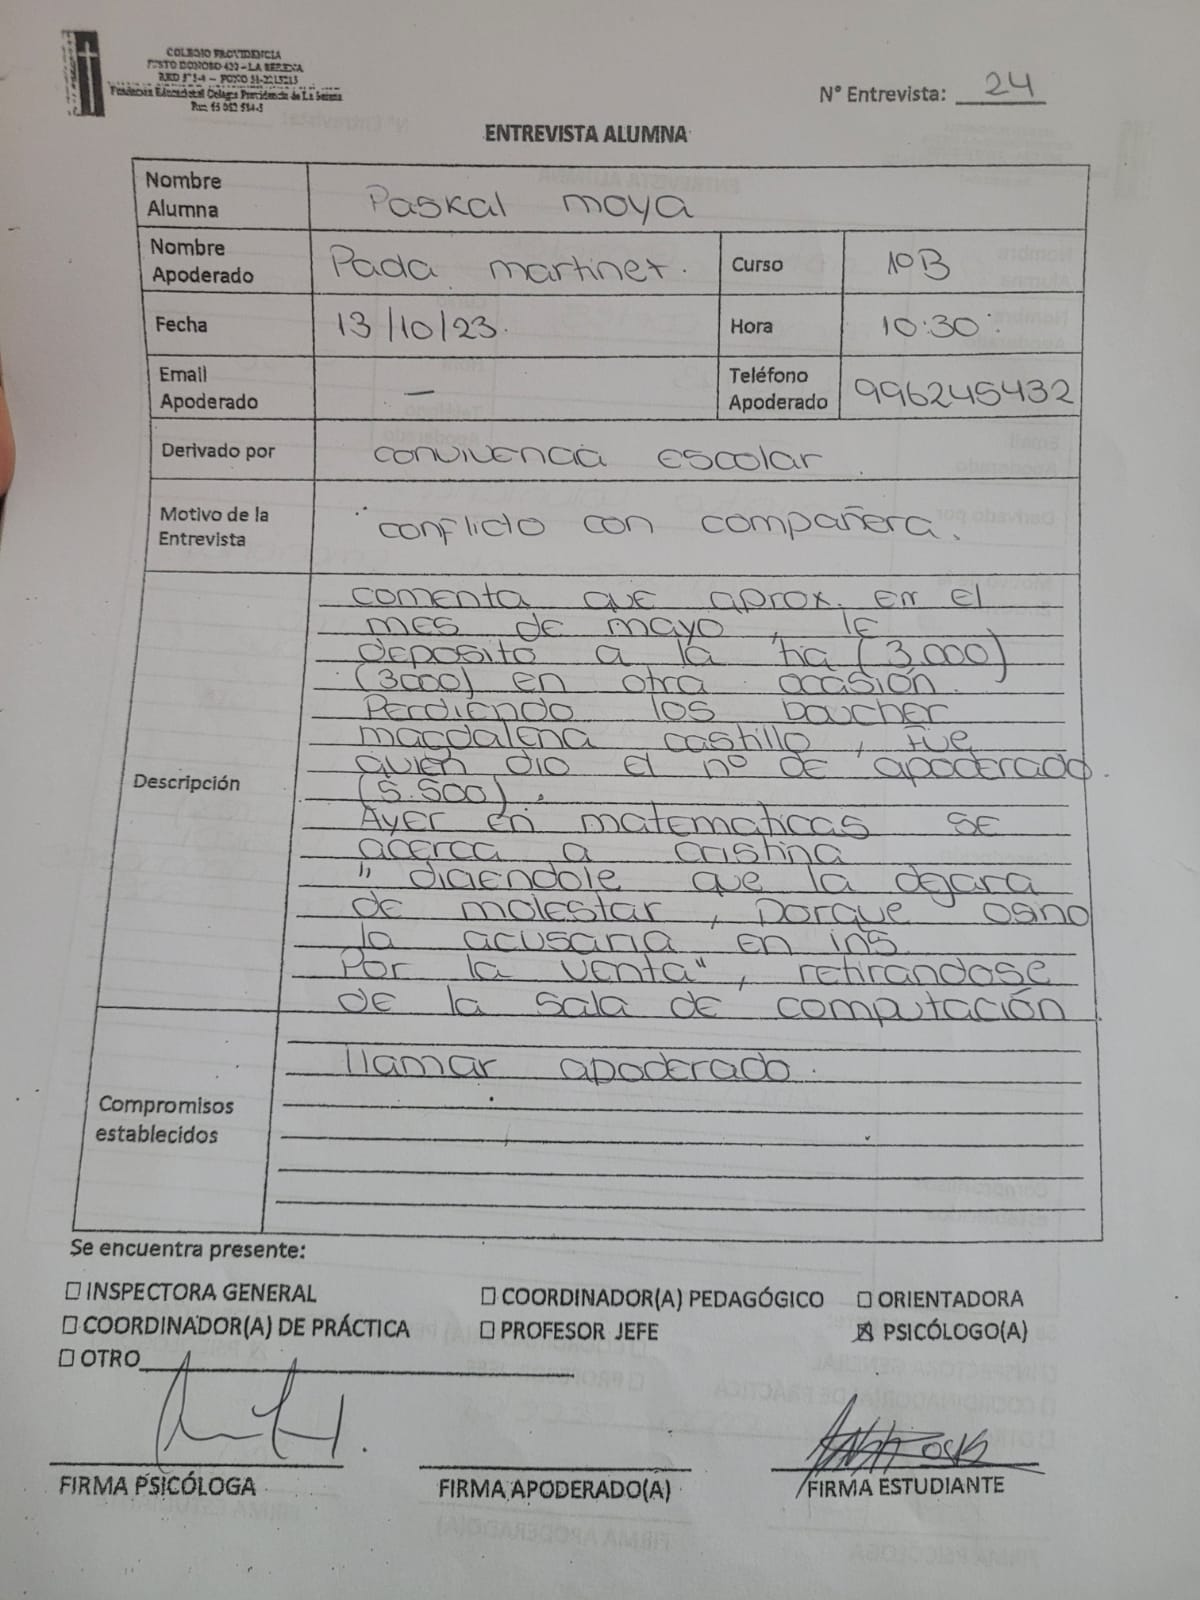 COLEGIO PROVIDENCIA
JUSTO DONOSO 420 – LA SERENA
Fundación Educacional Colegio Providencia de La Serena
N° Entrevista: 24
ENTREVISTA ALUMNA
Nombre Alumna Paskal moya
Nombre Apoderado Pada martinet. Curso 1ºB
Fecha 13/10/23. Hora 10:30
Email Apoderado – Teléfono Apoderado 996245432
Derivado por convivencia escolar.
Motivo de la Entrevista conflicto con compañera.
Descripción
comenta que aprox. en el
mes de mayo, le
deposito a la tia (3.000)
(3000) en otra ocasión.
Perdiendo los boucher
magdalena castillo, fue
quien dio el nº de apoderado.
(5.500).
Ayer en matematicas se
acerca a cristina
" diciendole que la dejara
de molestar, porque osino
la acusaria en ins.
Por la venta", retirandose
de la sala de computación
Compromisos establecidos
llamar apoderado.
Se encuentra presente:
☐ INSPECTORA GENERAL ☐ COORDINADOR(A) PEDAGÓGICO ☐ ORIENTADORA
☐ COORDINADOR(A) DE PRÁCTICA ☐ PROFESOR JEFE ☒ PSICÓLOGO(A)
☐ OTRO
FIRMA PSICÓLOGA FIRMA APODERADO(A) FIRMA ESTUDIANTE